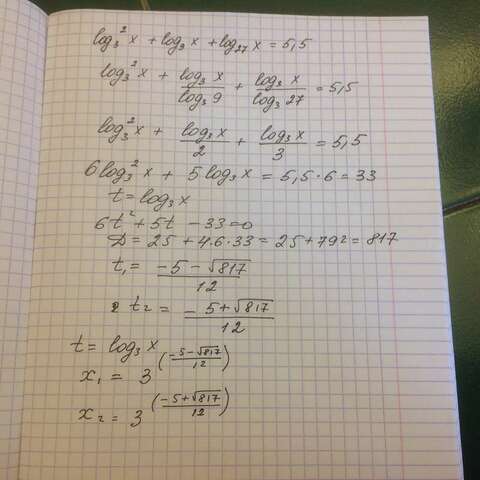 log₃²x + log₉x + log₂₇x = 5,5
log₃²x + log₃x/log₃9 + log₃x/log₃27 = 5,5
log₃²x + log₃x/2 + log₃x/3 = 5,5
6log₃²x + 5log₃x = 5,5·6 = 33
t = log₃x
6t² + 5t - 33 = 0
D = 25 + 4·6·33 = 25 + 792 = 817
t₁ = (-5 - √817)/12
t₂ = -(5 + √817)/12
t = log₃x
x₁ = 3^((-5-√817)/12)
x₂ = 3^((-5+√817)/12)